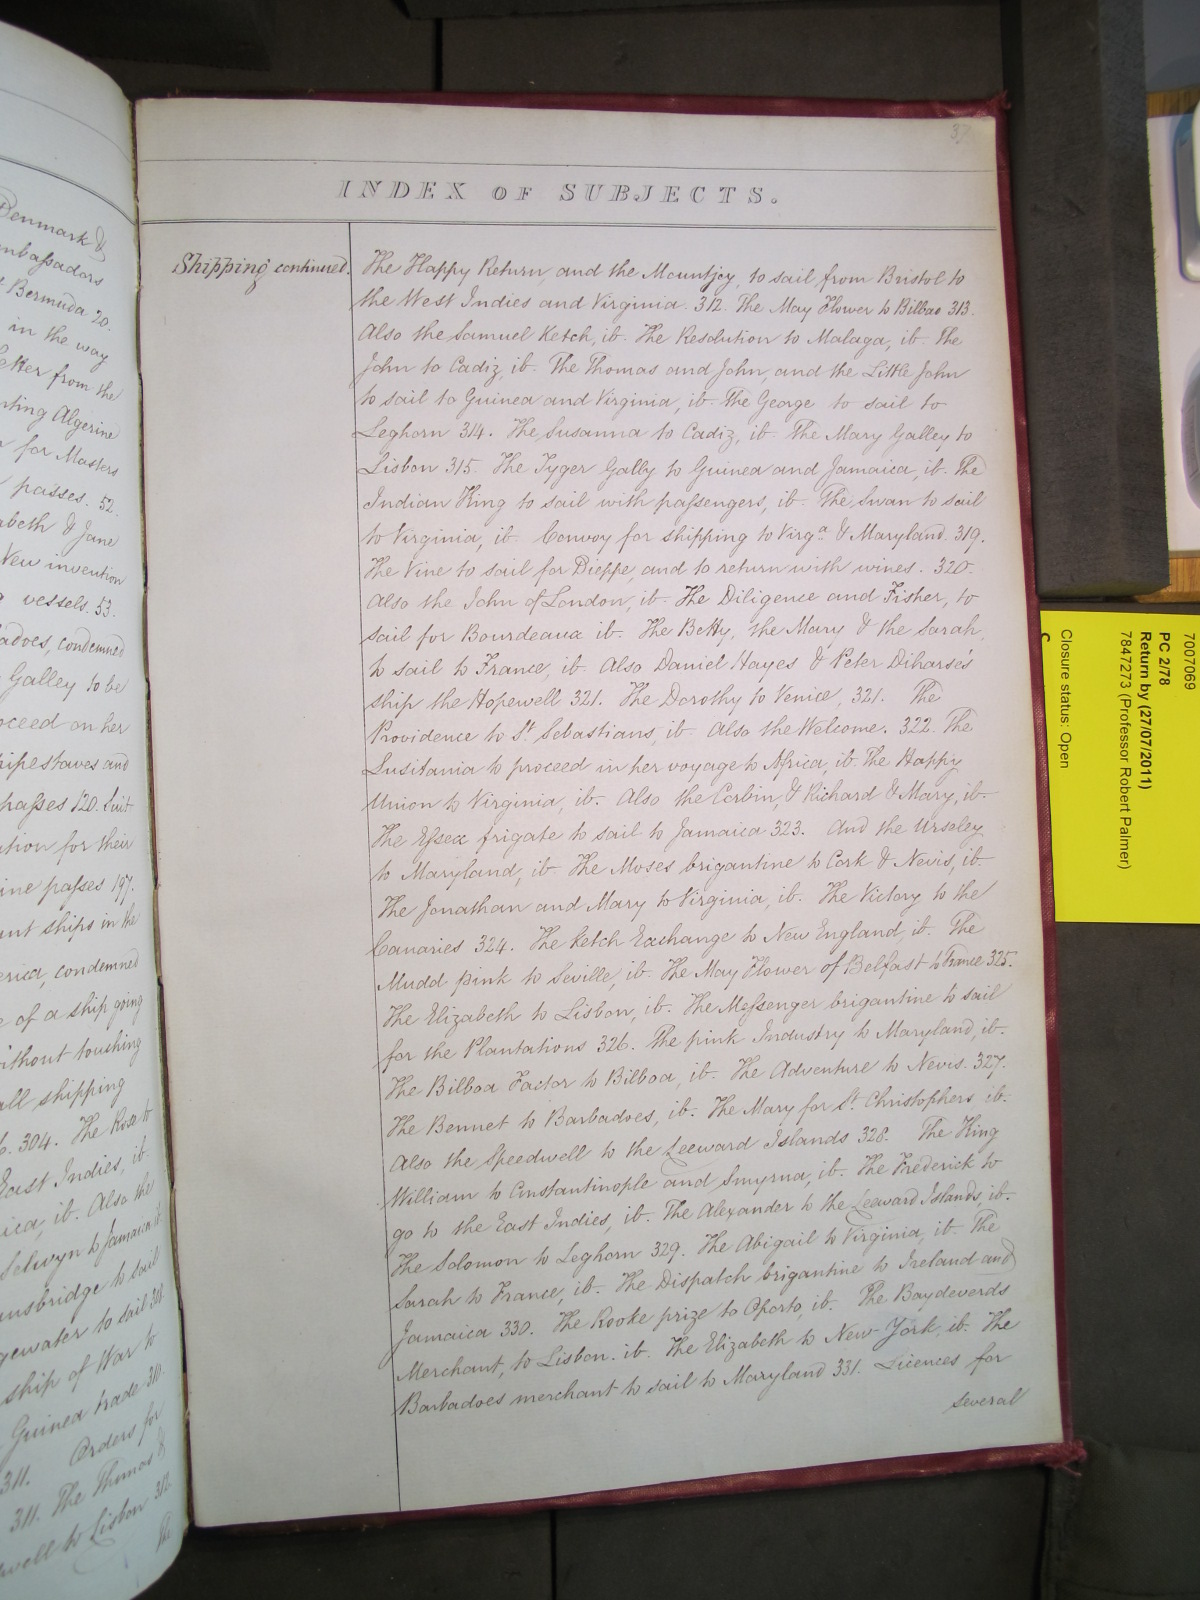 37
INDEX OF SUBJECTS.
Shipping continued.
The Happy Return, and the Mountjoy, to sail from Bristol to
the West Indies and Virginia. 312. The May Flower to Bilbao 313.
Also the Samuel Ketch, ib. The Resolution to Malaga, ib. The
John to Cadiz, ib. The Thomas and John, and the Little John
to sail to Guinea and Virginia, ib. The George to sail to
Leghorn 314. The Susanna to Cadiz, ib. The Mary Galley to
Lisbon 315. The Tyger Gally to Guinea and Jamaica, ib. The
Indian King to sail with passengers, ib. The Swan to sail
to Virginia, ib. Convoy for shipping to Virgª & Maryland. 319.
The Vine to sail for Dieppe, and to return with wines. 320.
Also the John of London, ib. The Diligence and Fisher, to
sail for Bourdeaux ib. The Betty, the Mary & the Sarah,
to sail to France, ib. Also Daniel Hayes & Peter Diharse's
ship the Hopewell 321. The Dorothy to Venice, 321. The
Providence to St Sebastians, ib. Also the Welcome. 322. The
Lusitania to proceed in her voyage to Africa, ib. The Happy
Union to Virginia, ib. Also the Corbin, & Richard & Mary, ib.
The Essex frigate to sail to Jamaica 323. And the Ursoley
to Maryland, ib. The Moses brigantine to Cork & Nevis, ib.
The Jonathan and Mary to Virginia, ib. The Victory to the
Canaries 324. The Ketch Exchange to New England, ib. The
Mudd pink to Seville, ib. The May Flower of Belfast to France 325.
The Elizabeth to Lisbon, ib. The Messenger brigantine to sail
for the Plantations 326. The pink Industry to Maryland, ib.
The Bilboa Factor to Bilboa, ib. The Adventure to Nevis. 327.
The Bennet to Barbadoes, ib. The Mary for St Christophers ib.
Also the Speedwell to the Leeward Islands 328. The King
William to Constantinople and Smyrna, ib. The Frederick to
go to the East Indies, ib. The Alexander to the Leeward Islands, ib.
The Solomon to Leghorn 329. The Abigail to Virginia, ib. The
Sarah to France, ib. The Dispatch brigantine to Ireland and
Jamaica 330. The Rooke prize to Oporto, ib. The Baydeverds
Merchant, to Lisbon. ib. The Elizabeth to New-York, ib. The
Barbadoes merchant to sail to Maryland 331. Licences for
several
Denmark &
mbassadors
t Bermuda 20.
in the way
etter from the
nting Algerine
for Masters
passes. 52.
abeth & Jane
New invention
vessels. 53.
adoes, condemned
Galley to be
oceed on her
ipestaves and
passes 120. Suit
ation for their
ine passes 197.
ant ships in the
erica, condemned
e of a ship going
ithout touching
all shipping
304. The Rose to
East Indies, ib.
ica, ib. Also the
Selwyn to Jamaica ib.
ansbridge to sail
gewater to sail 308
ship of War to
Guinea trade 310.
311. Orders for
311. The Thomas &
well to Lisbon 312
The
7007069
PC 2/78
Return by (27/07/2011)
7847273 (Professor Robert Palmer)
Closure status: Open
C